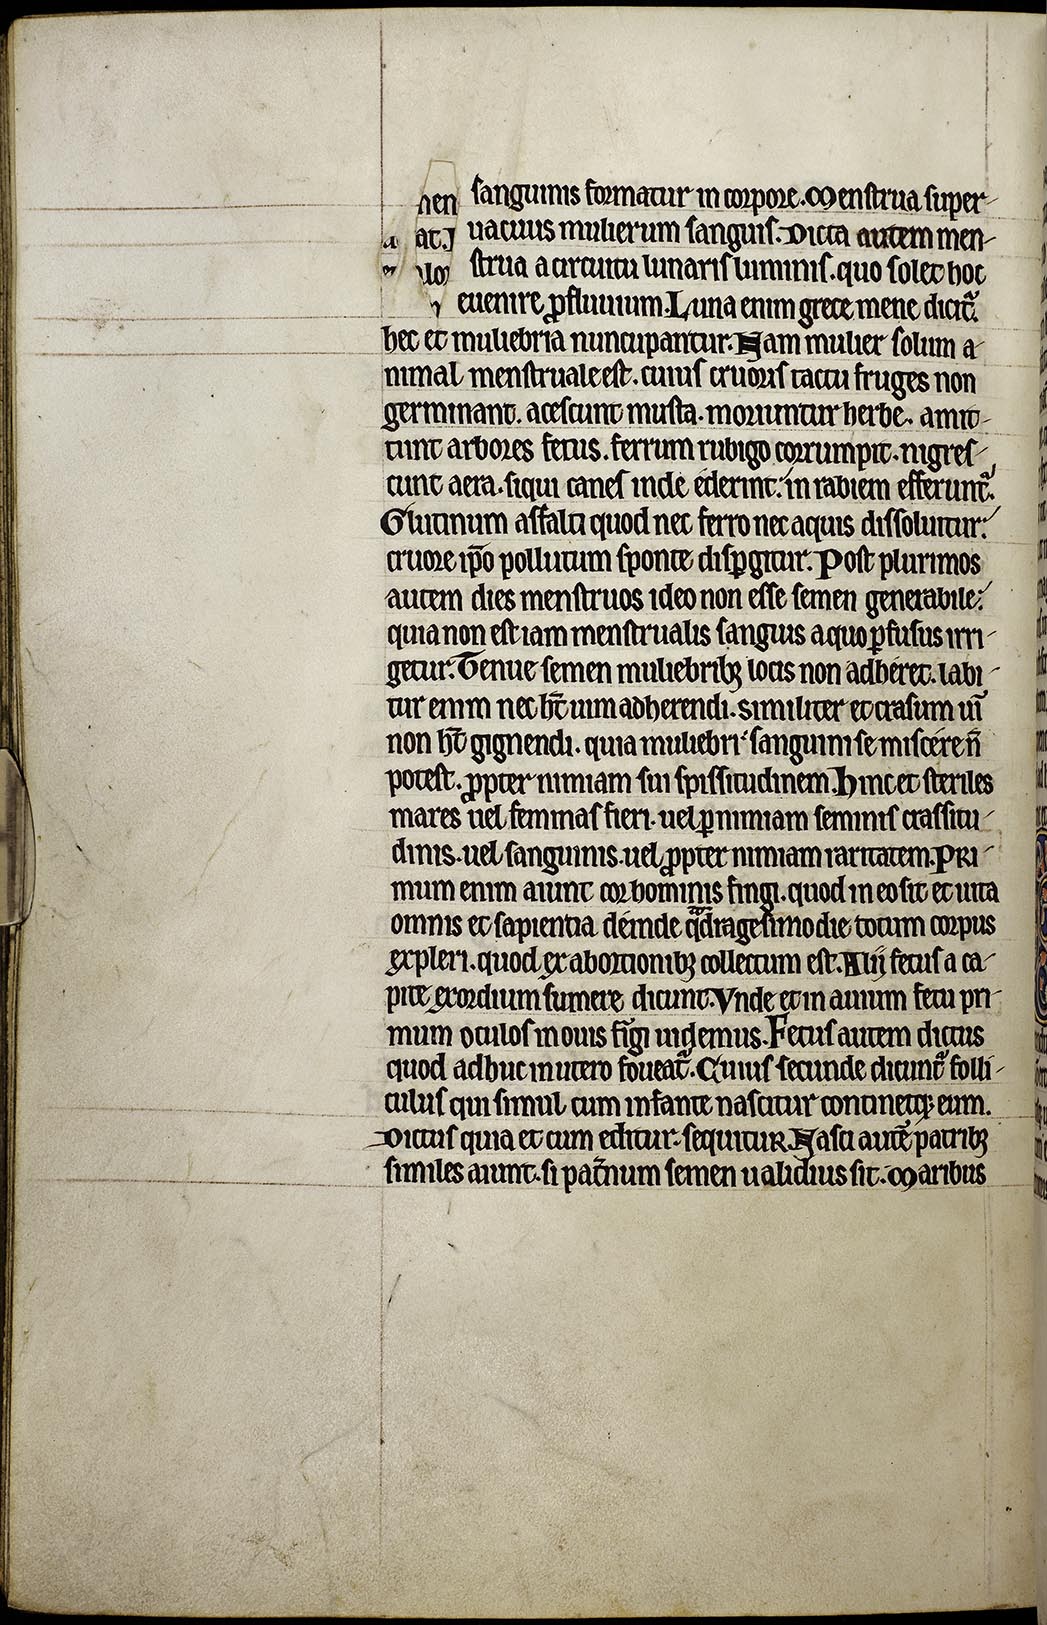 sanguinis formatur in corpore. Menstrua super-
uacuus mulierum sanguis. Dicta autem men-
strua a circuitu lunaris luminis. quo solet hoc
euenire ꝓfluuium. Luna enim grece mene dicit᷑.
hec et muliebria nuncupantur. Nam mulier solum a-
nimal menstruale est. cuius cruoris tactu fruges non
germinant. acescunt musta. moriuntur herbe. amit-
tunt arbores fetus. ferrum rubigo corrumpit. nigres-
cunt aera. siqui canes inde ederint. in rabiem efferunt᷑.
Glutinum asfalti quod nec ferro nec aquis dissoluitur.
cruore ip̄o pollutum sponte disꝑgitur. Post plurimos
autem dies menstruos ideo non esse semen generabile.
quia non est iam menstrualis sanguis a quo ꝑfusus irri-
getur. Tenue semen muliebribꝫ locis non adheret. labi-
tur enim nec ht̄ uim adherendi. similiter et crasum uī
non ht̄ gignendi. quia muliebri sanguini se miscere n̄
potest. ꝓpter nimiam sui spissitudinem. Hinc et steriles
mares uel feminas fieri. uel ꝑ nimiam seminis crassitu-
dinis. uel sanguinis. uel ꝓpter nimiam raritatem. PRI-
mum enim aiunt cor hominis fingi. quod in eo sit et uita
omnis et sapientia deinde qᷓdragesimo die totum corpus
expleri. quod ex abortionibꝫ collectum est. Alij fetus a ca-
pite exordium sumere dicunt. Vnde et in auium fetu pri-
mum oculos in ouis fīgi uidemus. Fetus autem dictus
quod adhuc in utero foueat᷑. Cuius secunde dicunt᷑ folli-
culus qui simul cum infante nascitur continetqꝫ eum.
Dictus quia et cum editur. sequituR. Nasci autē patribꝫ
similes aiunt. si pat̄num semen ualidius sit. Maribus